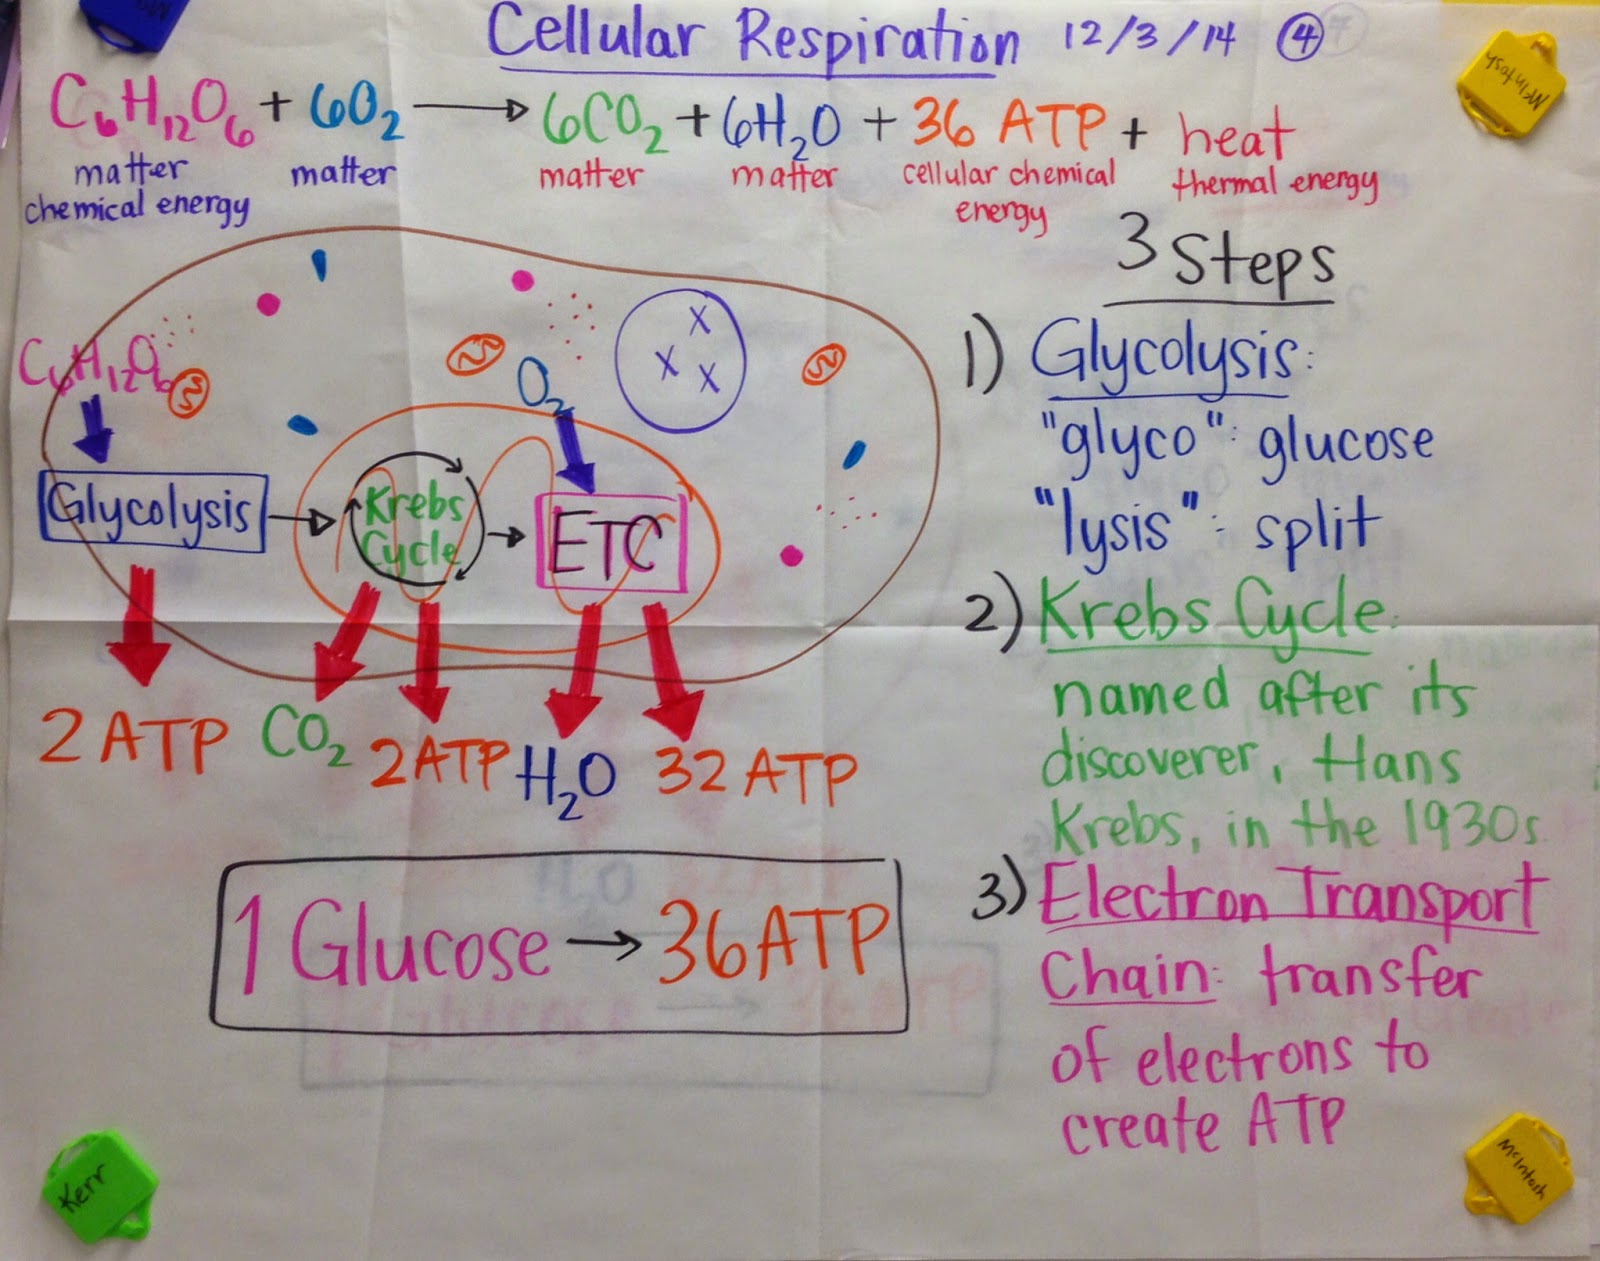 Cellular Respiration 12/3/14 ④
C₆H₁₂O₆ + 6O₂ → 6CO₂ + 6H₂O + 36 ATP + heat
matter matter matter matter cellular chemical thermal energy
chemical energy energy
3 Steps
1) Glycolysis:
"glyco": glucose
"lysis": split
2) Krebs Cycle:
named after its
discoverer, Hans
Krebs, in the 1930s
3) Electron Transport
Chain: transfer
of electrons to
create ATP
C₆H₁₂O₆
O₂
X
X
X
Glycolysis → Krebs
Cycle → ETC
2 ATP CO₂ 2 ATP H₂O 32 ATP
1 Glucose → 36 ATP
McIntosh
Kerr
McIntosh